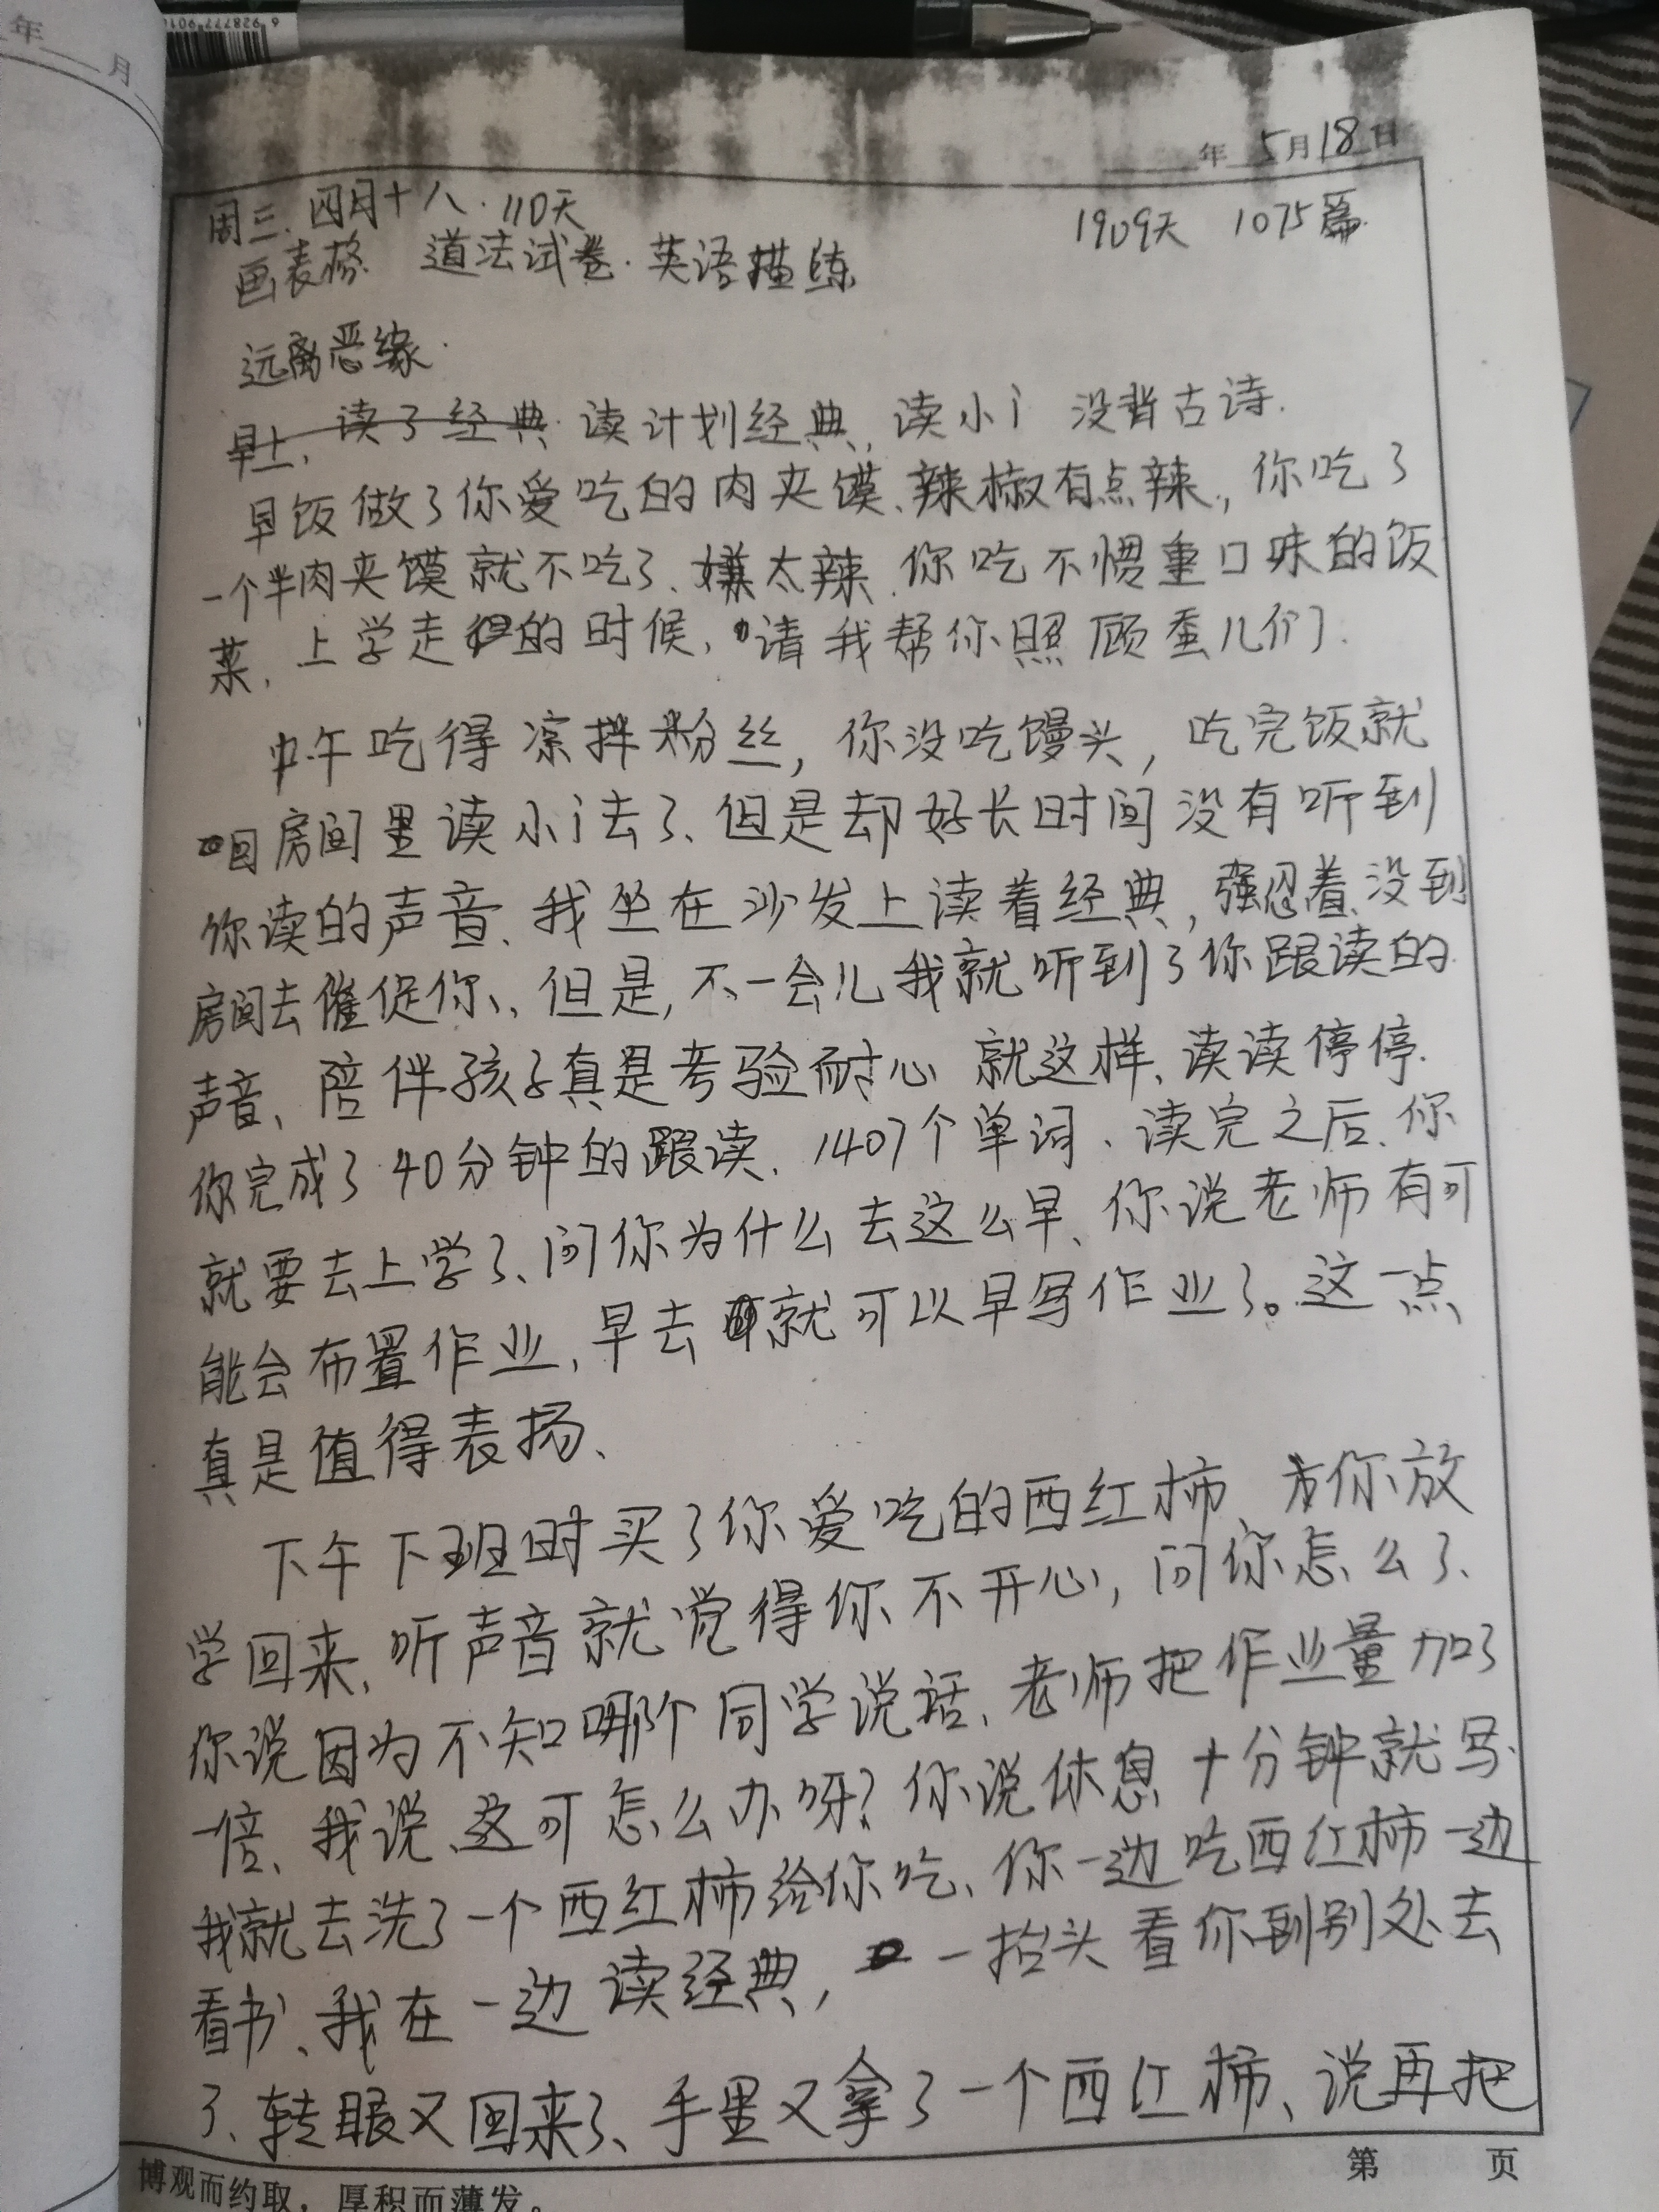 年 月
6 928777 901
年 5月18日
周三.四月十八.110天 1909天 1075篇.
画表格 道法试卷.英语描练
远离恶缘.
早上、读了经典 读计划经典,读小i 没背古诗.
早饭做了你爱吃的肉夹馍、辣椒有点辣,你吃了
一个半肉夹馍就不吃了、嫌太辣.你吃不惯重口味的饭
菜.上学走的时候、请我帮你照顾蚕儿们.
中午吃得凉拌粉丝,你没吃馒头,吃完饭就
回房间里读小i去了、但是却好长时间没有听到
你读的声音、我坐在沙发上读着经典,强忍着、没到
房间去催促你、但是,不一会儿我就听到了你跟读的
声音、陪伴孩子真是考验耐心 就这样、读读停停.
你完成了40分钟的跟读.1407个单词、读完之后.你
就要去上学了、问你为什么去这么早、你说老师有可
能会布置作业,早去就可以早写作业了。这一点
真是值得表扬、
下午下班时买了你爱吃的西红柿、为你放
学回来,听声音就觉得你不开心,问你怎么了、
你说因为不知哪个同学说话、老师把作业量加了
一倍、我说、这可怎么办呀?你说休息十分钟就写.
我就去洗了一个西红柿给你吃、你一边吃西红柿一边
看书、我在一边读经典,一抬头看你到别处去
了、转眼又回来了、手里又拿了一个西红柿、说再把
博观而约取,厚积而薄发。 第 页